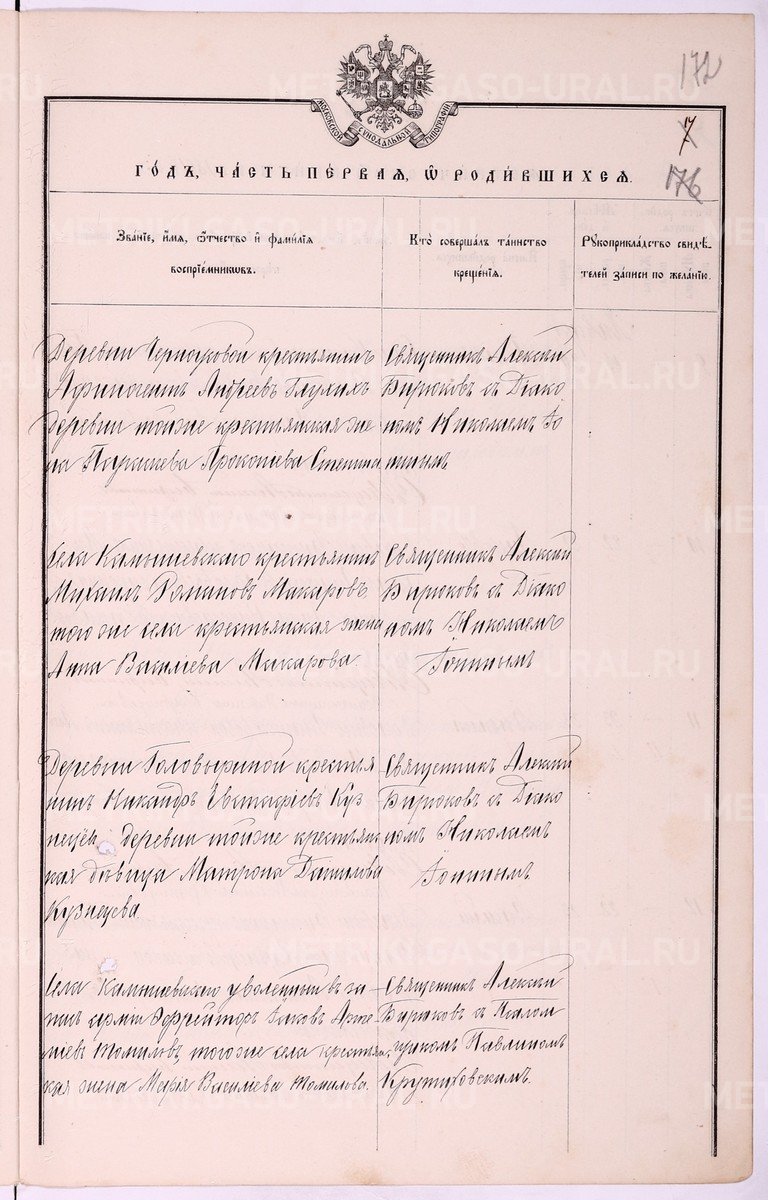 172
МОСКОВСКОЙ СѴНОДАЛЬНОЙ ТИПОГРАФІИ
17
176
ГО́ДЪ, ЧА́СТЬ ПЕ́РВАЯ, Ѡ҆ РОДИ́ВШИХСЯ.
Зва́нїе, и҆́мя, ѻ҆́тчество и҆ фами́лїя
воспрїе́мниковъ.
Кто̀ соверша́лъ та́инство
креще́нїя.
Рꙋкоприкла́дство свидѣ́-
телей за́писи по жела́нїю.
Деревни крестьянинъ
Афиногенъ Андреевъ Глухихъ
деревни тойже крестьянская же
на Параскева Прокопьева
Священникъ Алексій
Бирюковъ съ Діако
номъ Николаемъ Го
Села Камышевскаго крестьянинъ
Михаилъ Романовъ Макаровъ
того же села крестьянская жена
Анна Василіева Макарова.
Священникъ Алексій
Бирюковъ съ Діако
номъ Николаемъ
Деревни Головыриной крестья
нинъ Никандръ Евстафіевъ Куз
нецовъ деревни тойже крестьян
ская дѣвица Матрона Данилова
Кузнецова
Священникъ Алексій
Бирюковъ съ Діако
номъ Николаемъ
Села Камышевскаго уволенный въ за
пасъ арміи Ефрейторъ Іаковъ
Томиловъ, того же села крестьян
ская жена Марія Василіева Томилова.
Священникъ Алексій
Бирюковъ съ Псалом
щикомъ Павлиномъ
Крутиховскимъ.
METRIKI.GASO-URAL.RU